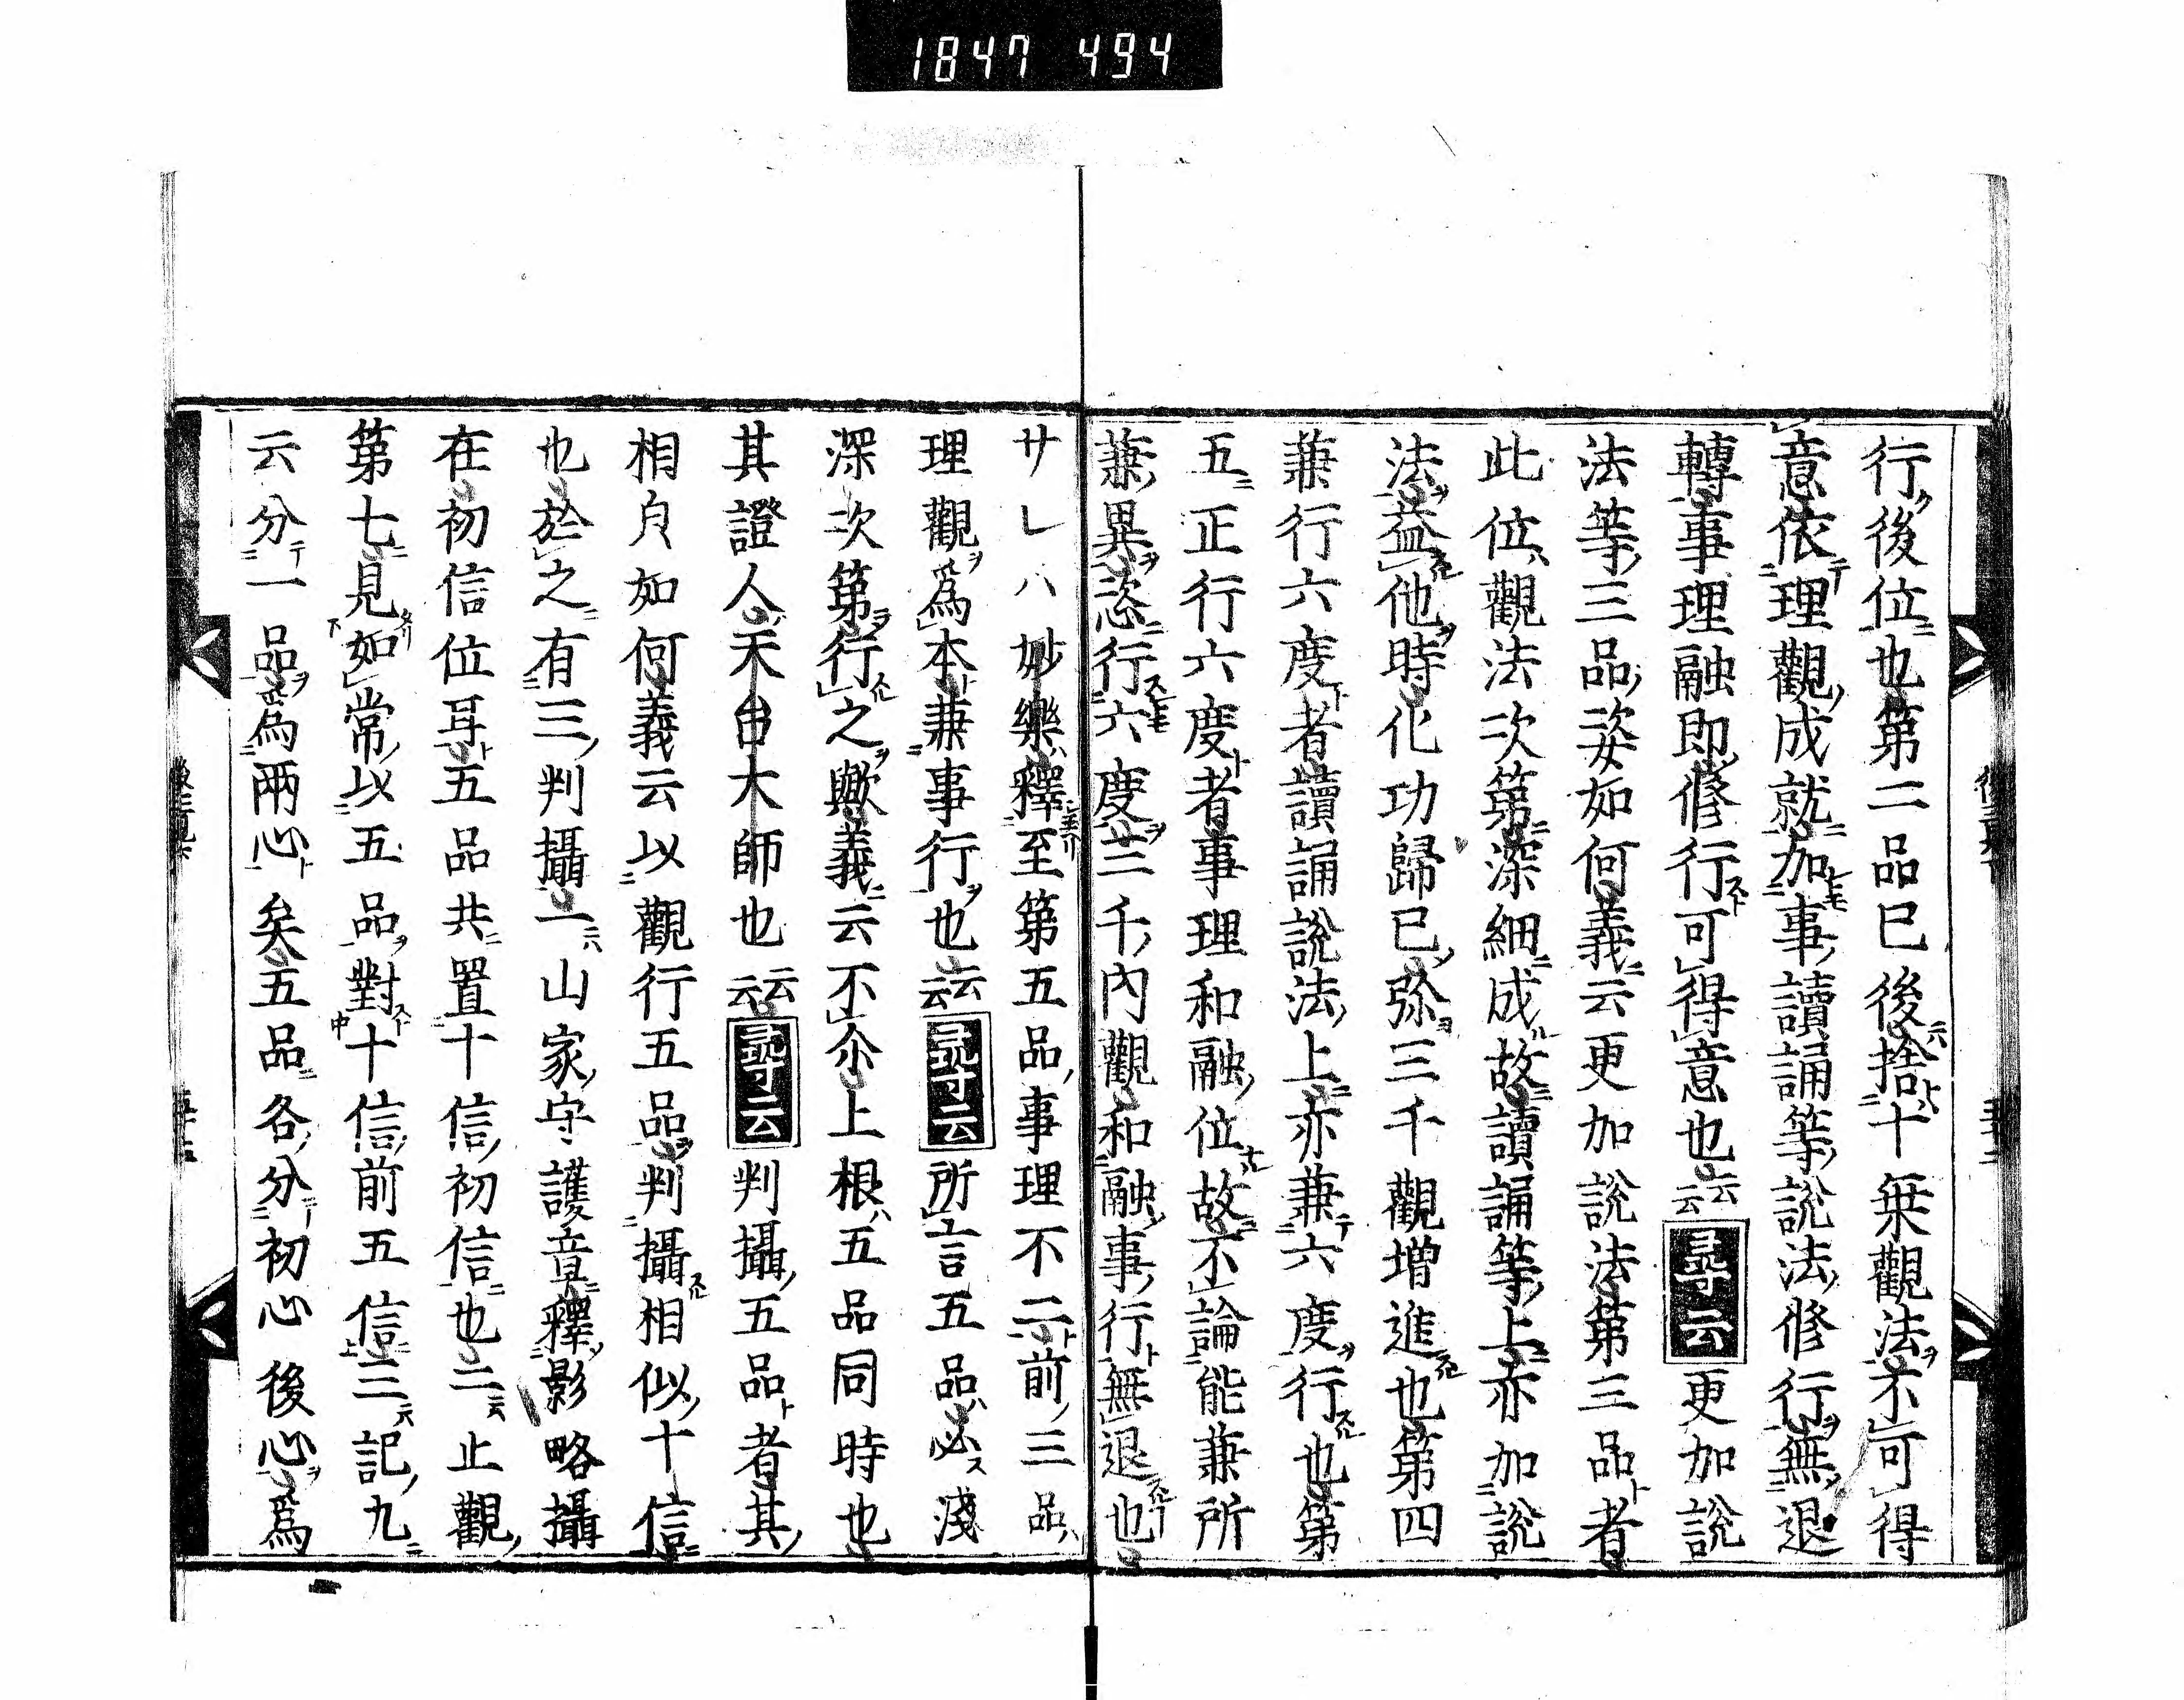 1847 494
行後位也第二品已後捨十乗觀法不可得
意依理觀成就加事讀誦等説法修行無退
轉事理融即修行可得意也云云尋云更加説
法等三品姿如何義云更加説法第三品者
此位觀法次第深細成故讀誦等上亦加説
法益他時化功歸已弥三千觀増進也第四
兼行六度者讀誦説法上亦兼六度行也第
五正行六度者事理和融位故不論能兼所
兼異恣行六度三千内觀和融事行無退也
サレハ妙樂釋至第五品事理不二前三品
理觀爲本兼事行也云云尋云所言五品必淺
深次第行之歟義云不尒上根五品同時也
其證人天台大師也云云尋云判攝五品者其
相㒵如何義云以觀行五品判攝相似十信
也於之有三判攝一山家守護章釋影略攝
在初信位耳五品共置十信初信也二止觀
第七見如常以五品對十信前五信三記九
云分一品爲兩心矣五品各分初心後心爲